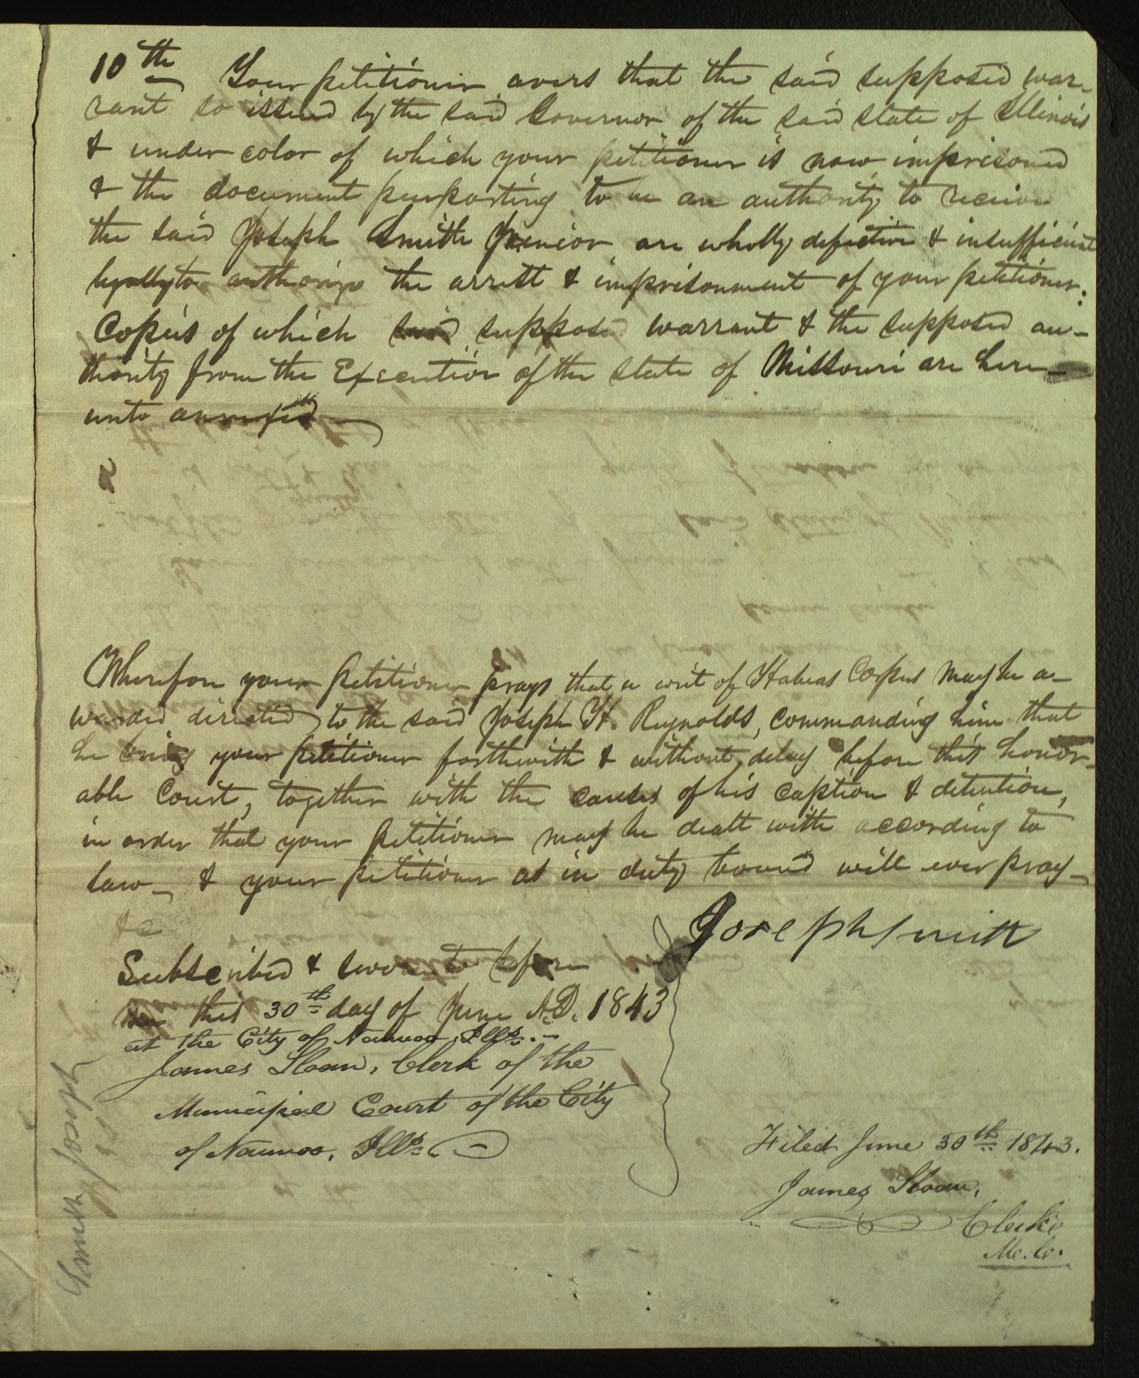 10th Your petitioner avers that the said supposed war-
rant so issued by the said Governor of the said state of Illinois
& under color of which your petitioner is now imprisoned
& the document purporting to be an authority to receive
the said Joseph Smith Junior are wholly defective & insufficient
legally to authorize the arrest & imprisonment of your petitioner:
Copies of which supposed warrant & the supposed au-
thority from the Executive of the state of Missouri are here-
unto annexed
Wherefore your petitioner prays that a writ of Habeas Corpus may be a-
warded directed to the said Joseph H. Reynolds, commanding him that
he bring your petitioner forthwith & without delay before this honor-
able Court, together with the causes of his caption & detention,
in order that your petitioner may be dealt with according to
law— & your petitioner as in duty bound will ever pray—
&c
Joseph Smith
Subscribed & sworn to before
me this 30th day of June A.D. 1843
at the City of Nauvoo, Ills.
James Sloan, Clerk of the
Municipal Court of the City
of Nauvoo, Ills.
Filed June 30th 1843.
James Sloan,
Clerk
M.C.
Smith Joseph